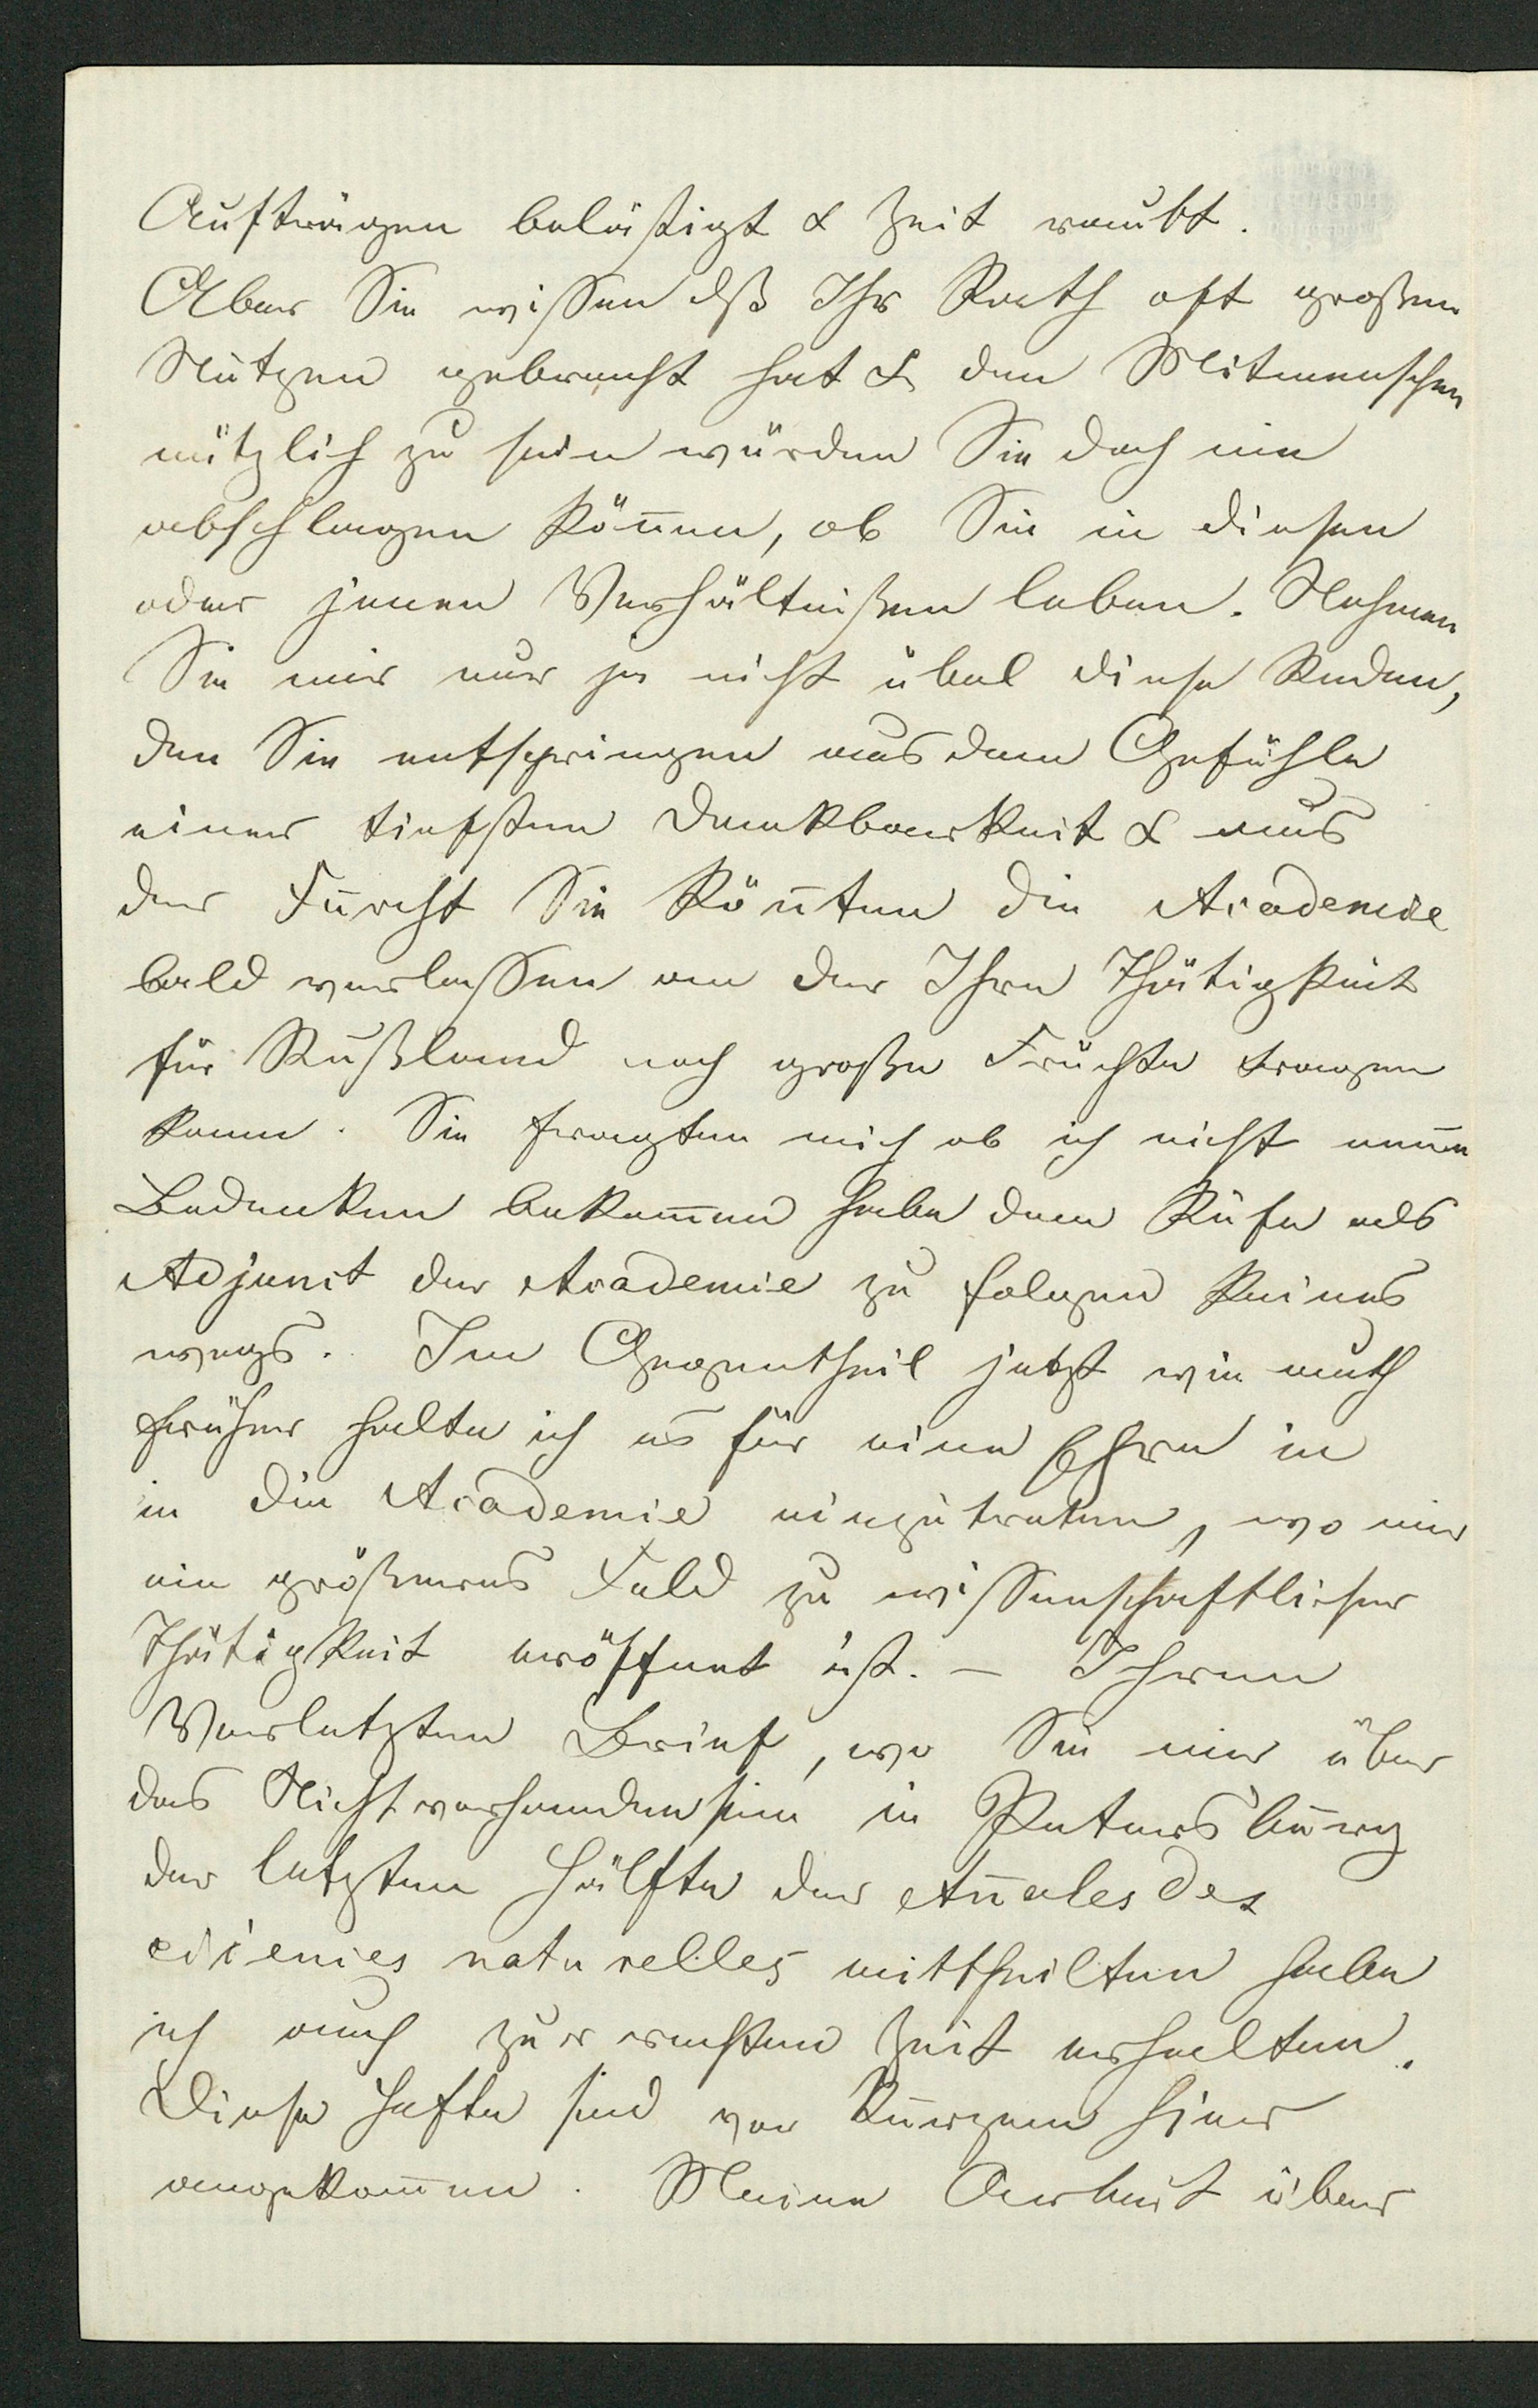 Aufträgen belästigt & Zeit raubt.
Aber Sie wissen dß Ihr Rath oft großen
Nutzen gebracht hat & den Mitmenschen
nützlich zu sein würden Sie doch nie
abschlagen kön̄en, ob Sie in diesen
oder jenen Verhältnißen leben. Nehmen
Sie mir nur ja nicht übel diese Reden,
den Sie entspringen aus dem Gefühle
einer tiefsten Dankbarkeit & aus
der Furcht Sie kön̄ten die Academie
bald verlassen an der Ihre Thätigkeit
für Rußland noch große Früchte tragen
kann. Sie fragten mich ob ich nicht neue
Bedenken bekom̄en habe dem Rufe als
Adjunct der Academie zu folgen keines
wegs. Im Gegentheil jetzt wie auch
früher halte ich es für eine Ehre in
in die Academie einzutreten, wo mir
ein größeres Feld zu wissenschaftlicher
Thätigkeit eröffnet ist. – Ihren
Vorletzten Brief, wo Sie mir über
das Nichtvorhandensein in Petersburg
der letzten Hälfte der An̄ales des
sciences naturelles mittheilten habe
ich auch zur rechten Zeit erhalten.
Diese Hefte sind vor Kurzem hier
angekom̄en. Meine Arbeit über